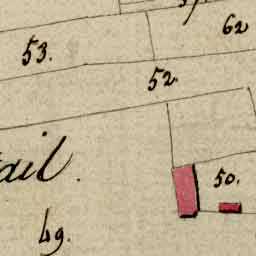 62
53.
52.
50.
49.